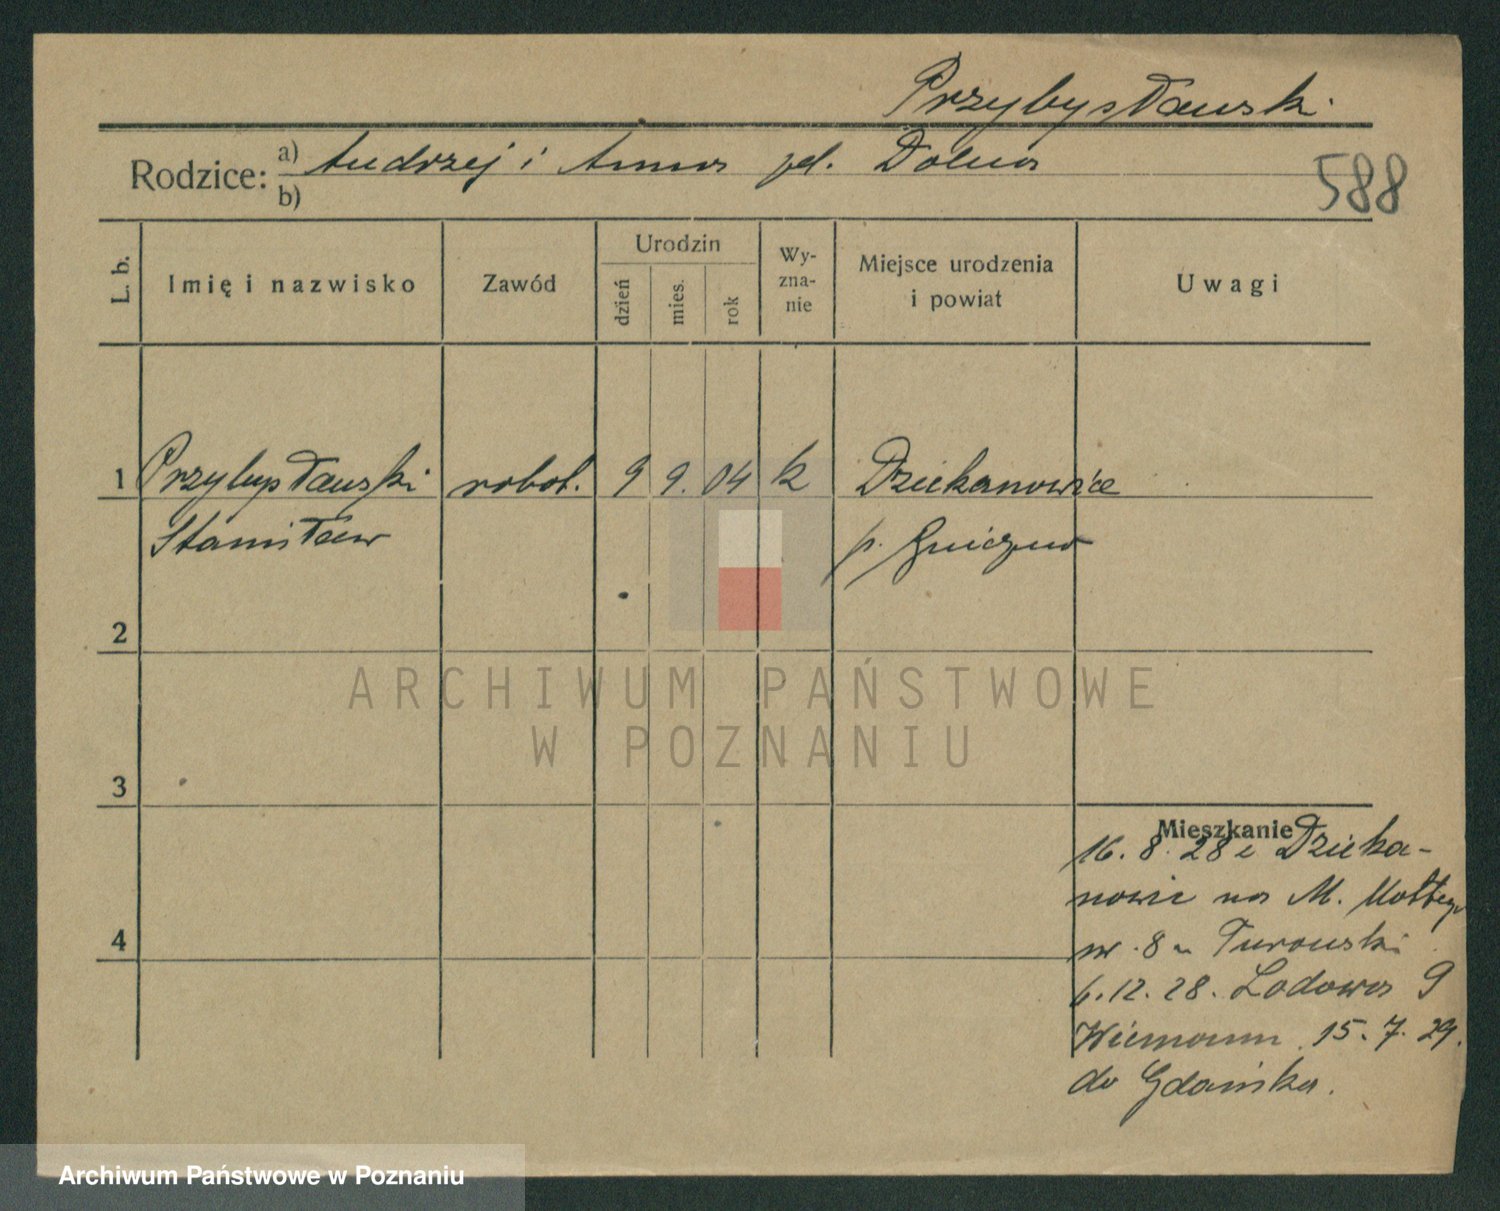 Przybysławski
Rodzice: a) Andrzej i Anna pd. Dolna
b)
588
L. b.
Imię i nazwisko
Zawód
Urodzin
dzień
mies.
rok
Wy-
zna-
nie
Miejsce urodzenia
i powiat
Uwagi
1 Przybysławski robot. 9 9. 04 k Dziekanowice
Stanisław p. Gniezno
2
ARCHIWUM PAŃSTWOWE
W POZNANIU
3
Mieszkanie
16. 8. 28 z Dzieka-
nowic na M.
4
nr. 8 Turowski
6. 12. 28. 9
15. 7. 29.
do Gdańska.
Archiwum Państwowe w Poznaniu